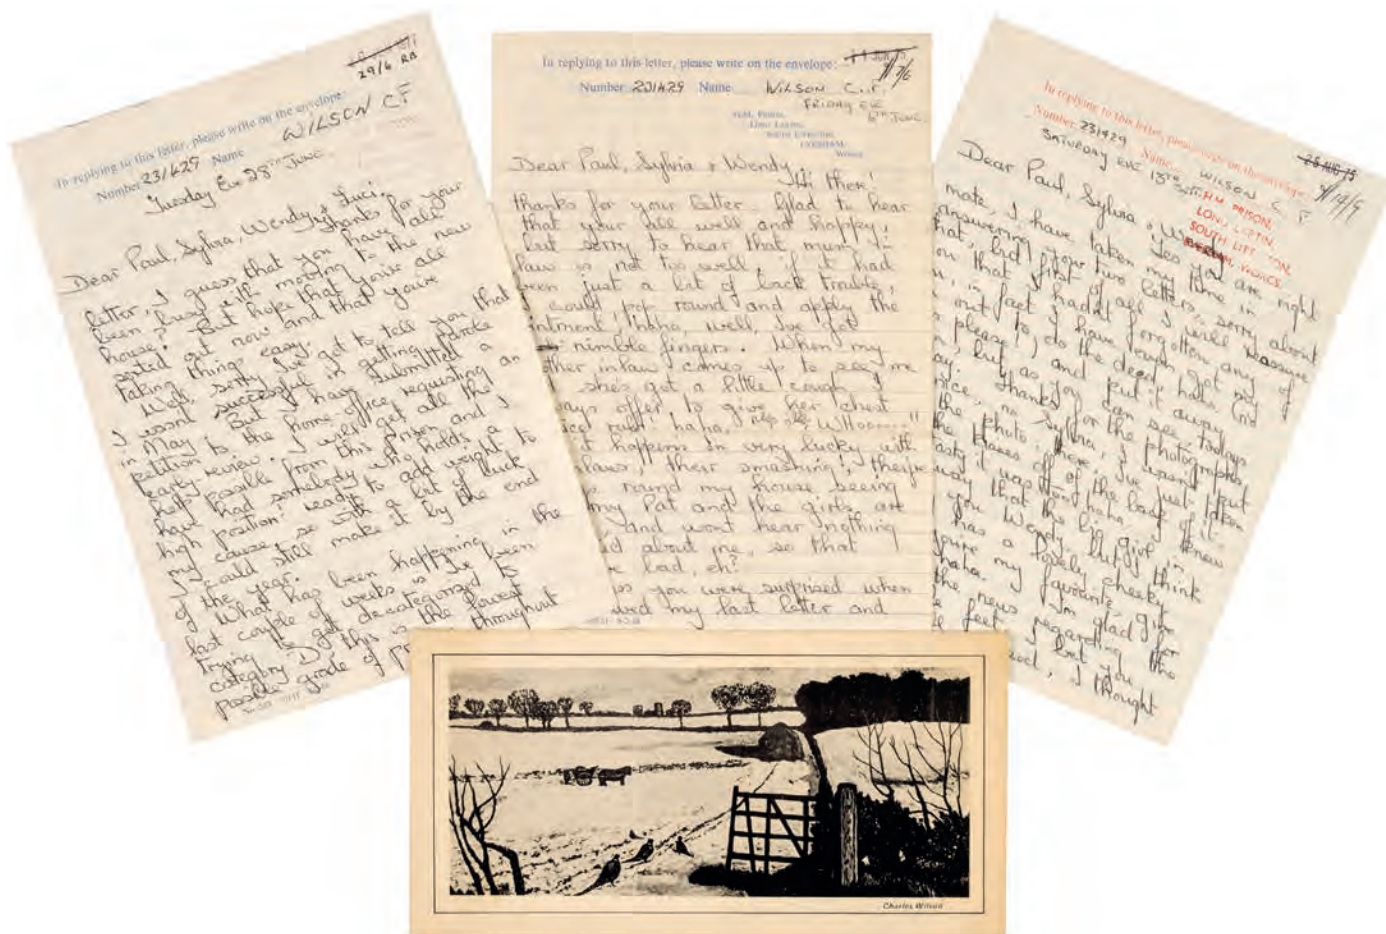 29/6 RB
In replying to this letter, please write on the envelope:
Number 231429 Name WILSON CF
Tuesday Eve 28th JUNE.
Dear Paul, Sylvia, Wendy & Luci,
Thanks for your
letter, I guess that you have all
been busy with moving to the new
house? But hope that you're all
sorted out now and that you're
taking things easy.
Well, sorry I've got to tell you that
I wont successful in getting parole
in May. But I have submitted a
petition to the home office requesting an
early review. I will get all the
help possible from this prison and I
have had somebody who holds a
high position ready to add weight to
my cause, so with a bit of luck
I could still make it by the end
of the year.
What has been happening in the
last couple of weeks is I've been
trying to get decategorized to
category 'D', this is the lowest
possible grade of throughout
In replying to this letter, please write on the envelope:
9/7/6
Number 231429 Name WILSON C.F.
FRIDAY EVE
6TH JUNE.
H.M. PRISON,
LONG LARTIN,
SOUTH LITTLETON,
EVESHAM,
WORCS.
Dear Paul, Sylvia & Wendy,
Hi there!
thanks for your letter. Glad to hear
that your all well and happy,
but sorry to hear that mum in
law is not too well, if it had
been just a bit of back trouble,
I could pop round and apply the
ointment, haha, well, I've got
nimble fingers. When my
other inlaw comes up to see me
she's got a little cough I
ways offer to give her chest
rub! haha, Whooo...."
t happens Im very lucky with
laws, their smashing!, their
round my house seeing
my Pat and the girls are
and wont hear nothing
about me, so that
bad, eh?
ss you were surprised when
my last letter and
25 AUG 75
9/19/9
In replying to this letter, please write on the envelope:
Number 231429 Name WILSON C. F
SATURDAY EVE 13TH SEPT.
H.M. PRISON,
LONG LARTIN,
SOUTH LITTLETON,
EVESHAM, WORCS.
Dear Paul, Sylvia & Wendy
Yes you are right
mate, I have taken my time in
answering your two letters, sorry about
that, but first of all I will reassure
that I hadn't forgotten any of
in fact I have tough got my
out to do the deed, haha (no
please!) and put it away
but as you can see, todays
day.
Thanks for the photographs,
nice, no Sylvia, I wasn't put
the photo there, I've just taken
the off of the back of it
it was too haha.
way that the big girl in
you Wendy luv, I think
has a lovely cheeky
my favourite, give
haha. Im glad for
the news regarding the
feet, I bet you
I thought
Charles Wilson